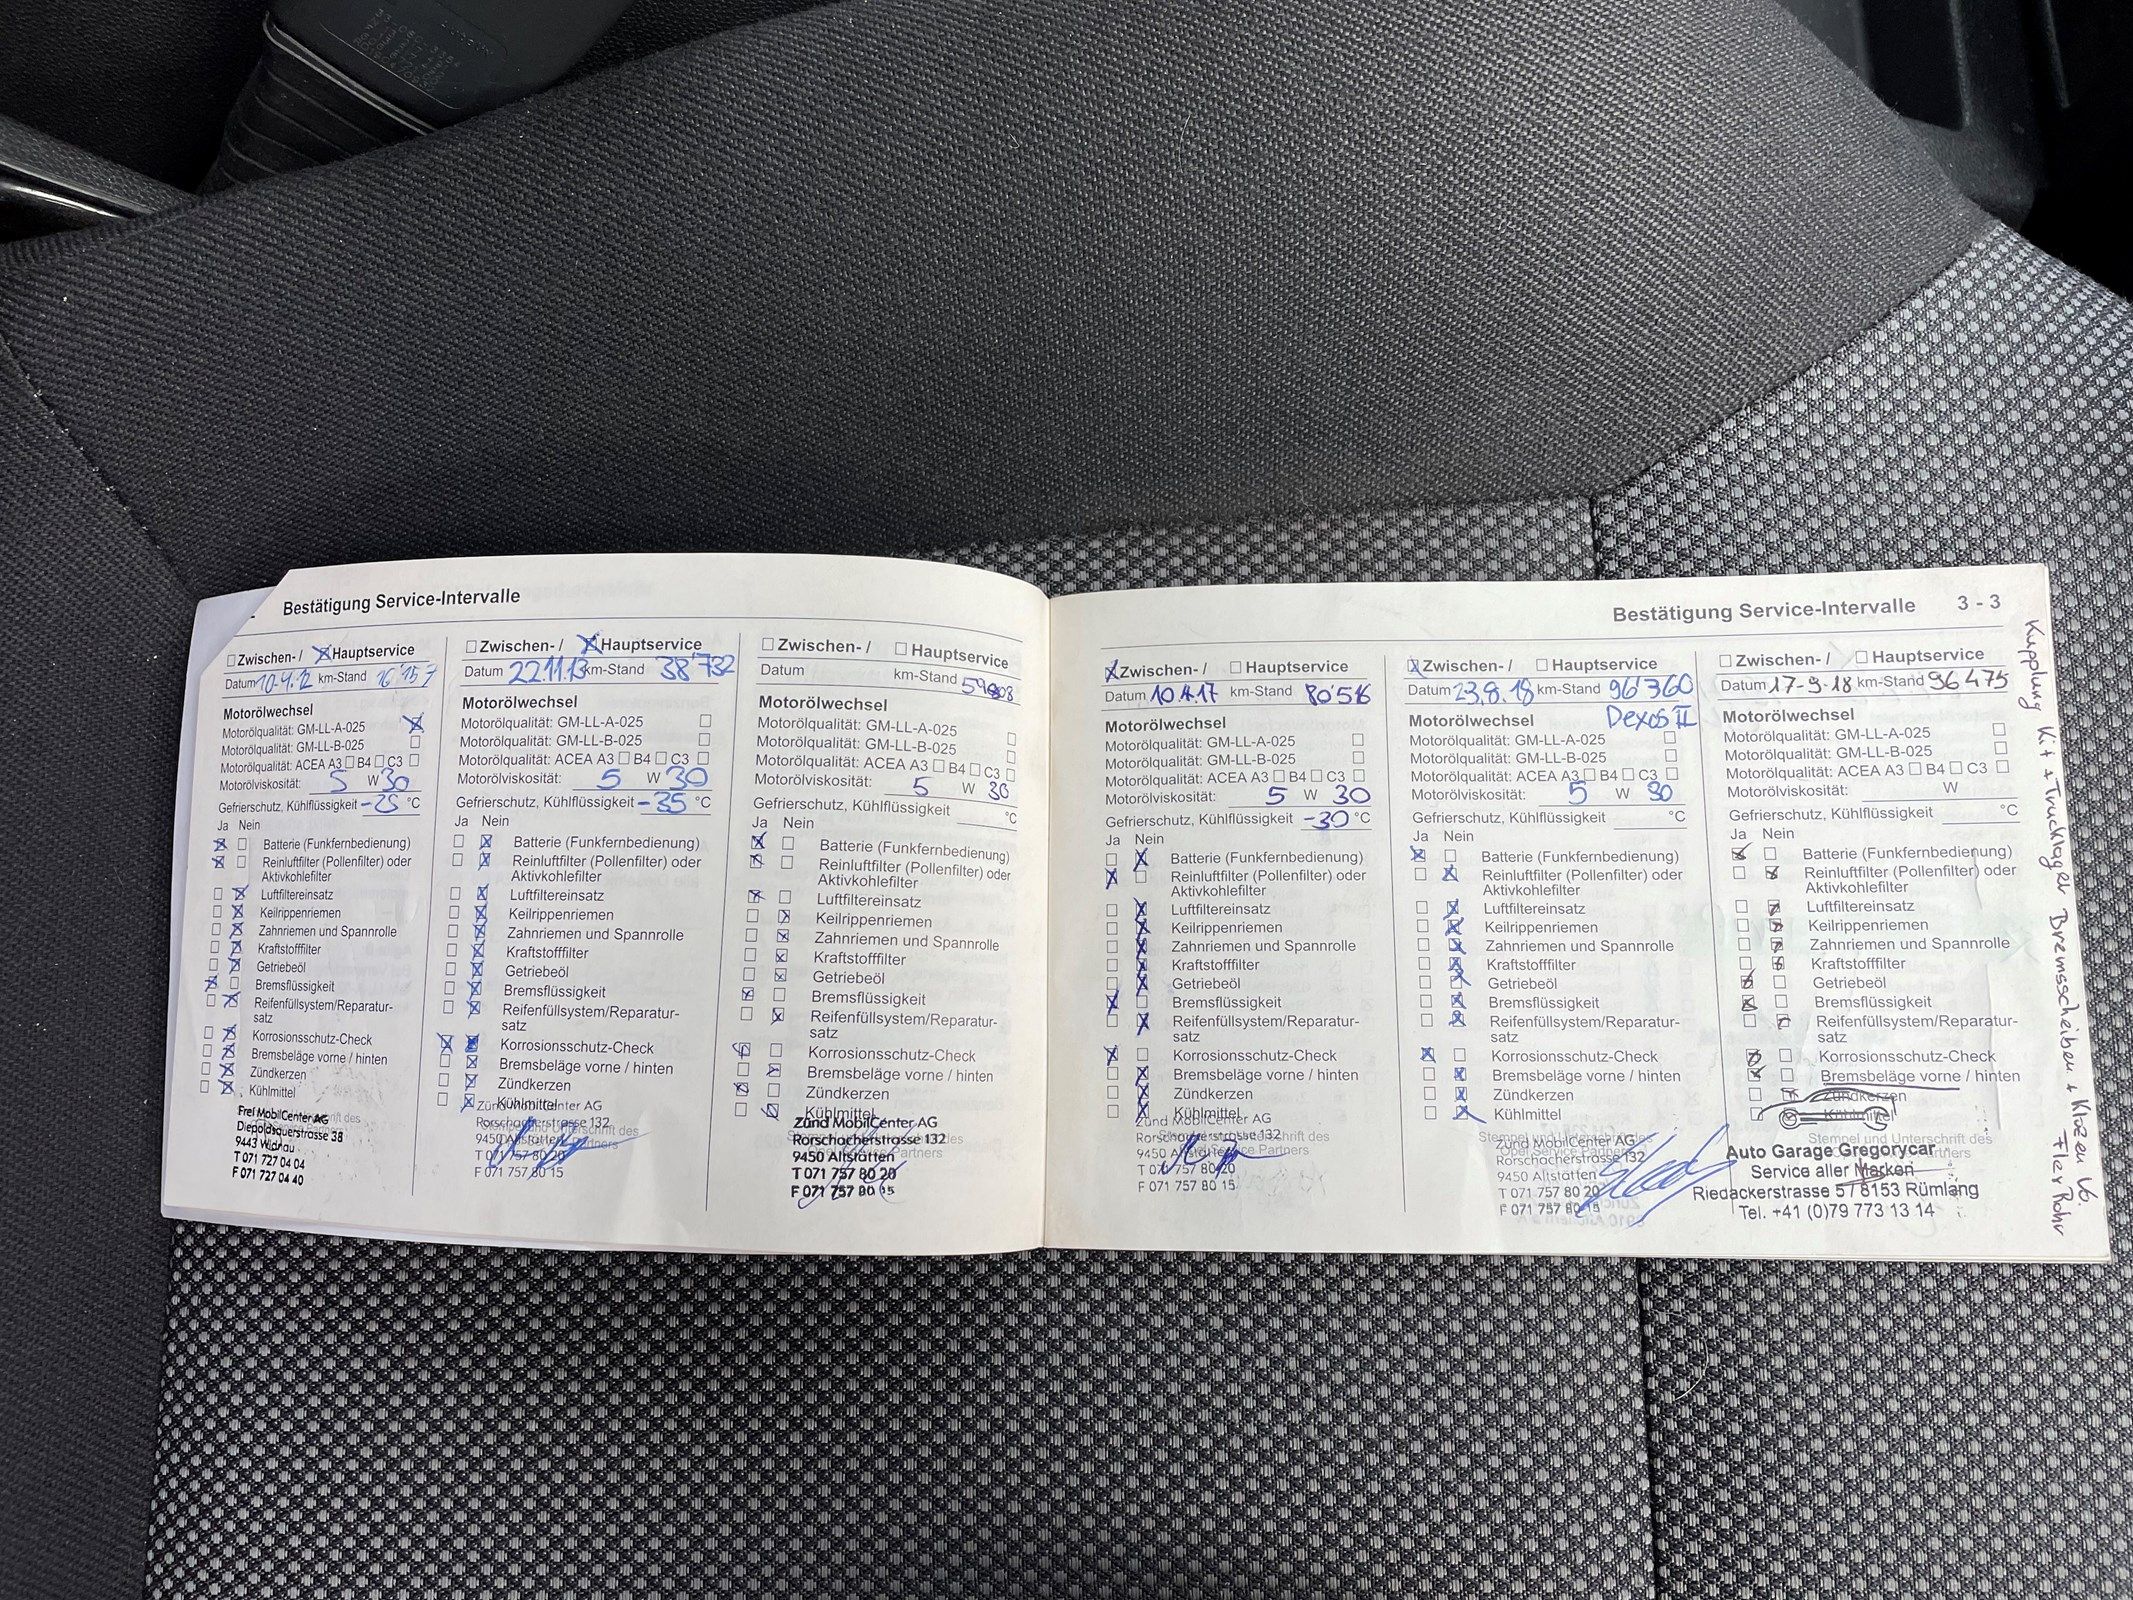 Bestätigung Service-Intervalle
Zwischen- / Hauptservice
Datum 10.4.12 km-Stand 16'157
Motorölwechsel
Motorölqualität: GM-LL-A-025
Motorölqualität: GM-LL-B-025
Motorölqualität: ACEA A3 B4 C3
Motorölviskosität: 5 W 30
Gefrierschutz, Kühlflüssigkeit -25 °C
Ja Nein
Batterie (Funkfernbedienung)
Reinluftfilter (Pollenfilter) oder
Aktivkohlefilter
Luftfiltereinsatz
Keilrippenriemen
Zahnriemen und Spannrolle
Kraftstofffilter
Getriebeöl
Bremsflüssigkeit
Reifenfüllsystem/Reparatur-
satz
Korrosionsschutz-Check
Bremsbeläge vorne / hinten
Zündkerzen
Kühlmittel
Frei MobilCenter AG
Diepoldsauerstrasse 38
9443 Widnau
T 071 727 04 04
F 071 727 04 40
Zwischen- / Hauptservice
Datum 22.11.13 km-Stand 38'732
Motorölwechsel
Motorölqualität: GM-LL-A-025
Motorölqualität: GM-LL-B-025
Motorölqualität: ACEA A3 B4 C3
Motorölviskosität: 5 W 30
Gefrierschutz, Kühlflüssigkeit -35 °C
Ja Nein
Batterie (Funkfernbedienung)
Reinluftfilter (Pollenfilter) oder
Aktivkohlefilter
Luftfiltereinsatz
Keilrippenriemen
Zahnriemen und Spannrolle
Kraftstofffilter
Getriebeöl
Bremsflüssigkeit
Reifenfüllsystem/Reparatur-
satz
Korrosionsschutz-Check
Bremsbeläge vorne / hinten
Zündkerzen
Kühlmittel
Zünd MobilCenter AG
Rorschacherstrasse 132
9450 Altstätten
T 071 757 80 20
F 071 757 80 15
Zwischen- / Hauptservice
Datum km-Stand
Motorölwechsel
Motorölqualität: GM-LL-A-025
Motorölqualität: GM-LL-B-025
Motorölqualität: ACEA A3 B4 C3
Motorölviskosität: 5 W 30
Gefrierschutz, Kühlflüssigkeit °C
Ja Nein
Batterie (Funkfernbedienung)
Reinluftfilter (Pollenfilter) oder
Aktivkohlefilter
Luftfiltereinsatz
Keilrippenriemen
Zahnriemen und Spannrolle
Kraftstofffilter
Getriebeöl
Bremsflüssigkeit
Reifenfüllsystem/Reparatur-
satz
Korrosionsschutz-Check
Bremsbeläge vorne / hinten
Zündkerzen
Kühlmittel
Zünd MobilCenter AG
Rorschacherstrasse 132
9450 Altstätten
T 071 757 80 20
F 071 757 80 15
Bestätigung Service-Intervalle 3 - 3
Zwischen- / Hauptservice
Datum 10.4.17 km-Stand 80'516
Motorölwechsel
Motorölqualität: GM-LL-A-025
Motorölqualität: GM-LL-B-025
Motorölqualität: ACEA A3 B4 C3
Motorölviskosität: 5 W 30
Gefrierschutz, Kühlflüssigkeit -30 °C
Ja Nein
Batterie (Funkfernbedienung)
Reinluftfilter (Pollenfilter) oder
Aktivkohlefilter
Luftfiltereinsatz
Keilrippenriemen
Zahnriemen und Spannrolle
Kraftstofffilter
Getriebeöl
Bremsflüssigkeit
Reifenfüllsystem/Reparatur-
satz
Korrosionsschutz-Check
Bremsbeläge vorne / hinten
Zündkerzen
Kühlmittel
Zünd MobilCenter AG
Rorschacherstrasse 132
9450 Altstätten
T 071 757 80 20
F 071 757 80 15
Zwischen- / Hauptservice
Datum 23.8.18 km-Stand 96'360
Motorölwechsel Dexos II
Motorölqualität: GM-LL-A-025
Motorölqualität: GM-LL-B-025
Motorölqualität: ACEA A3 B4 C3
Motorölviskosität: 5 W 30
Gefrierschutz, Kühlflüssigkeit °C
Ja Nein
Batterie (Funkfernbedienung)
Reinluftfilter (Pollenfilter) oder
Aktivkohlefilter
Luftfiltereinsatz
Keilrippenriemen
Zahnriemen und Spannrolle
Kraftstofffilter
Getriebeöl
Bremsflüssigkeit
Reifenfüllsystem/Reparatur-
satz
Korrosionsschutz-Check
Bremsbeläge vorne / hinten
Zündkerzen
Kühlmittel
Stempel und Unterschrift des
Opel Service Partners
Zünd MobilCenter AG
Rorschacherstrasse 132
9450 Altstätten
T 071 757 80 20
F 071 757 80 15
Zwischen- / Hauptservice
Datum 17-9-18 km-Stand 96475
Motorölwechsel
Motorölqualität: GM-LL-A-025
Motorölqualität: GM-LL-B-025
Motorölqualität: ACEA A3 B4 C3
Motorölviskosität: W
Gefrierschutz, Kühlflüssigkeit °C
Ja Nein
Batterie (Funkfernbedienung)
Reinluftfilter (Pollenfilter) oder
Aktivkohlefilter
Luftfiltereinsatz
Keilrippenriemen
Zahnriemen und Spannrolle
Kraftstofffilter
Getriebeöl
Bremsflüssigkeit
Reifenfüllsystem/Reparatur-
satz
Korrosionsschutz-Check
Bremsbeläge vorne / hinten
Zündkerzen
Kühlmittel
Stempel und Unterschrift des
Auto Garage Gregorycar
Service aller Marken
Riedackerstrasse 5 / 8153 Rümlang
Tel. +41 (0)79 773 13 14
Kupplung Kit + Trucklager Bremsscheiben + Klozen Vo.
Flex Rohr